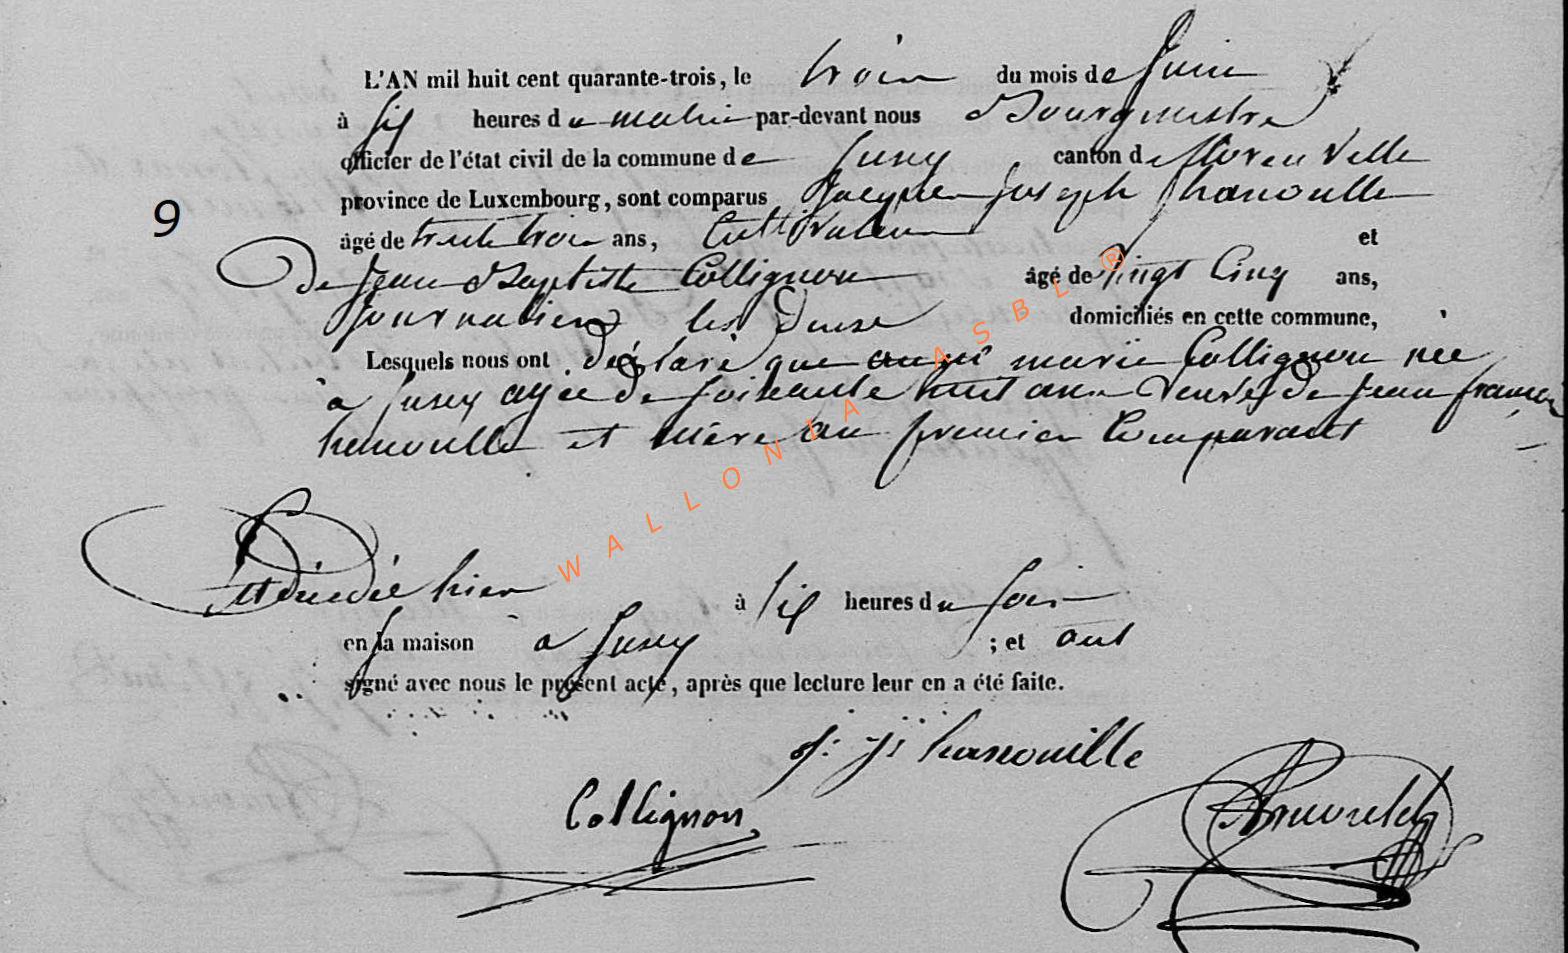 L'AN mil huit cent quarante-trois, le trois du mois de Juin
à six heures du matin par-devant nous Bourgmestre
officier de l'état civil de la commune de Jusy canton de florenville
province de Luxembourg, sont comparus Jacques Joseph hanouille
9
âgé de trente trois ans, Cultivateur et
De Jean Baptiste Collignon âgé de vingt Cinq ans,
Journalier les Deux domiciliés en cette commune,
Lesquels nous ont déclaré que marie Collignon née
à Jusy agée de soixante huit ans Veuve de Jean françois
hanouille et mère au premier Comparant
est décédée hier à six heures du soir
en sa maison a Jusy ; et ont
signé avec nous le présent acte, après que lecture leur en a été faite.
j: j: hanouille
Collignon
WALLONIA ASBL ®